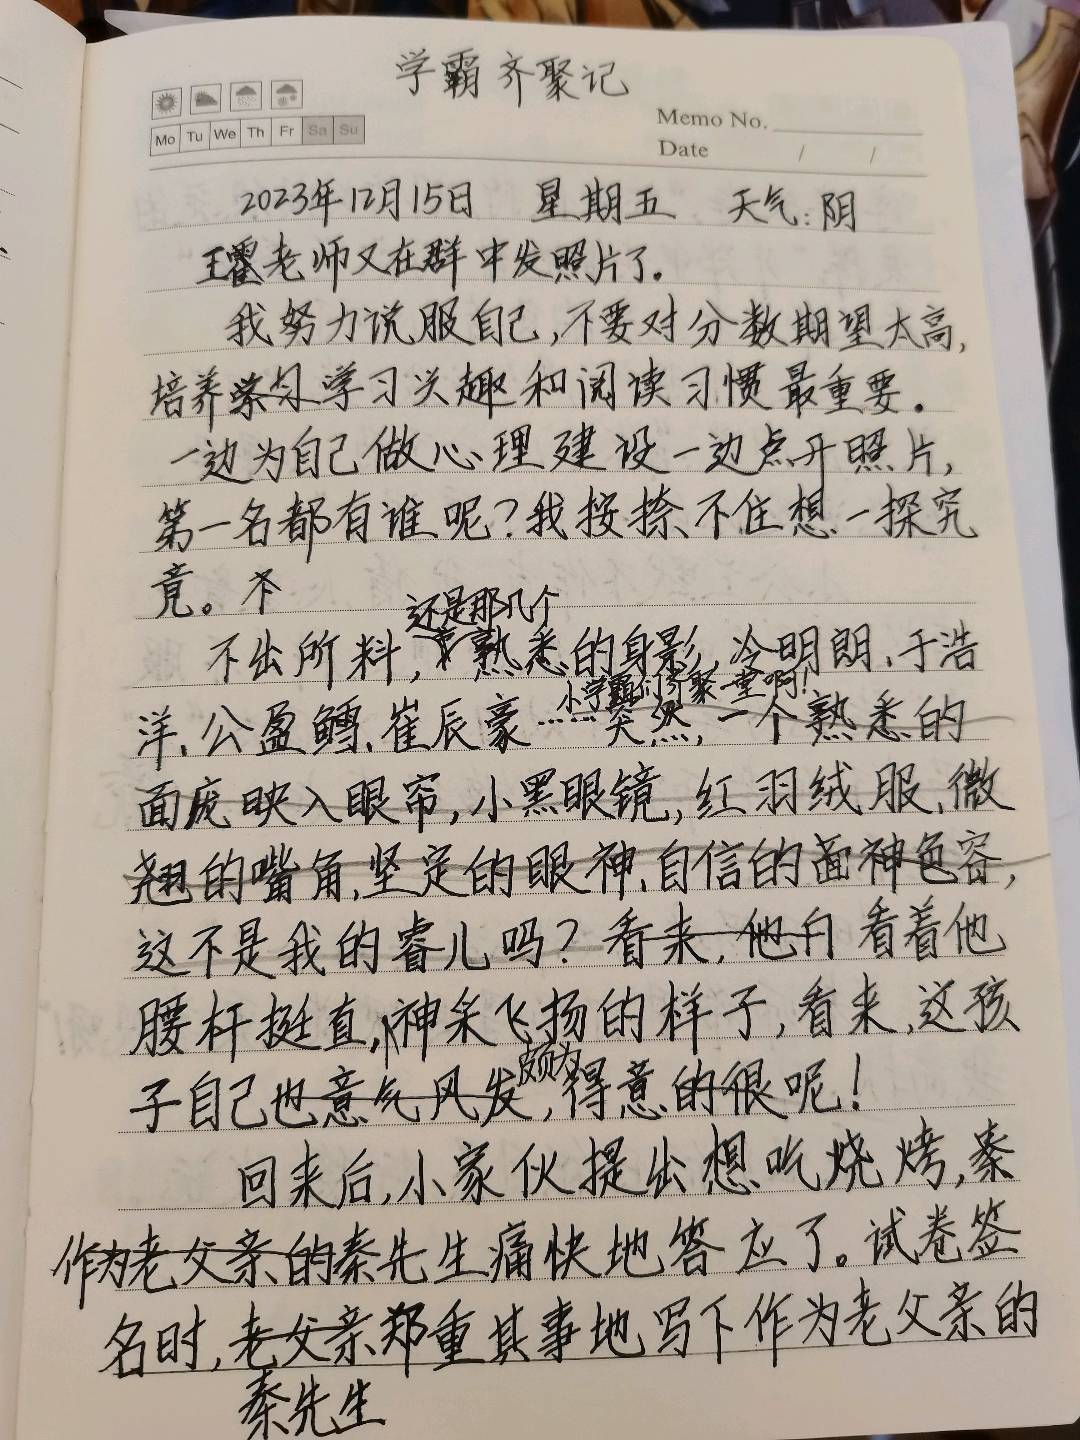 学霸齐聚记
Mo Tu We Th Fr Sa Su
Memo No.
Date / /
2023年12月15日 星期五 天气:阴
王霍老师又在群中发照片了。
我努力说服自己,不要对分数期望太高,
培养学习兴趣和阅读习惯最重要。
一边为自己做心理建设一边点开照片,
第一名都有谁呢?我按捺不住想一探究
竟。不
还是那几个
不出所料,熟悉的身影,冷明朗、于浩
小学霸们齐聚一堂啊!
洋、公盈鳕、崔辰豪……突然,一个熟悉的
面庞映入眼帘,小黑眼镜,红羽绒服,微
翘的嘴角,坚定的眼神,自信的面神色容,
这不是我的睿儿吗?看来,他自看着他
腰杆挺直,神采飞扬的样子,看来,这孩
颇为
子自己也意气风发,得意的很呢!
回来后,小家伙提出想吃烧烤,秦
作为老父亲的秦先生痛快地答应了。试卷签
名时,老父亲郑重其事地写下作为老父亲的
秦先生